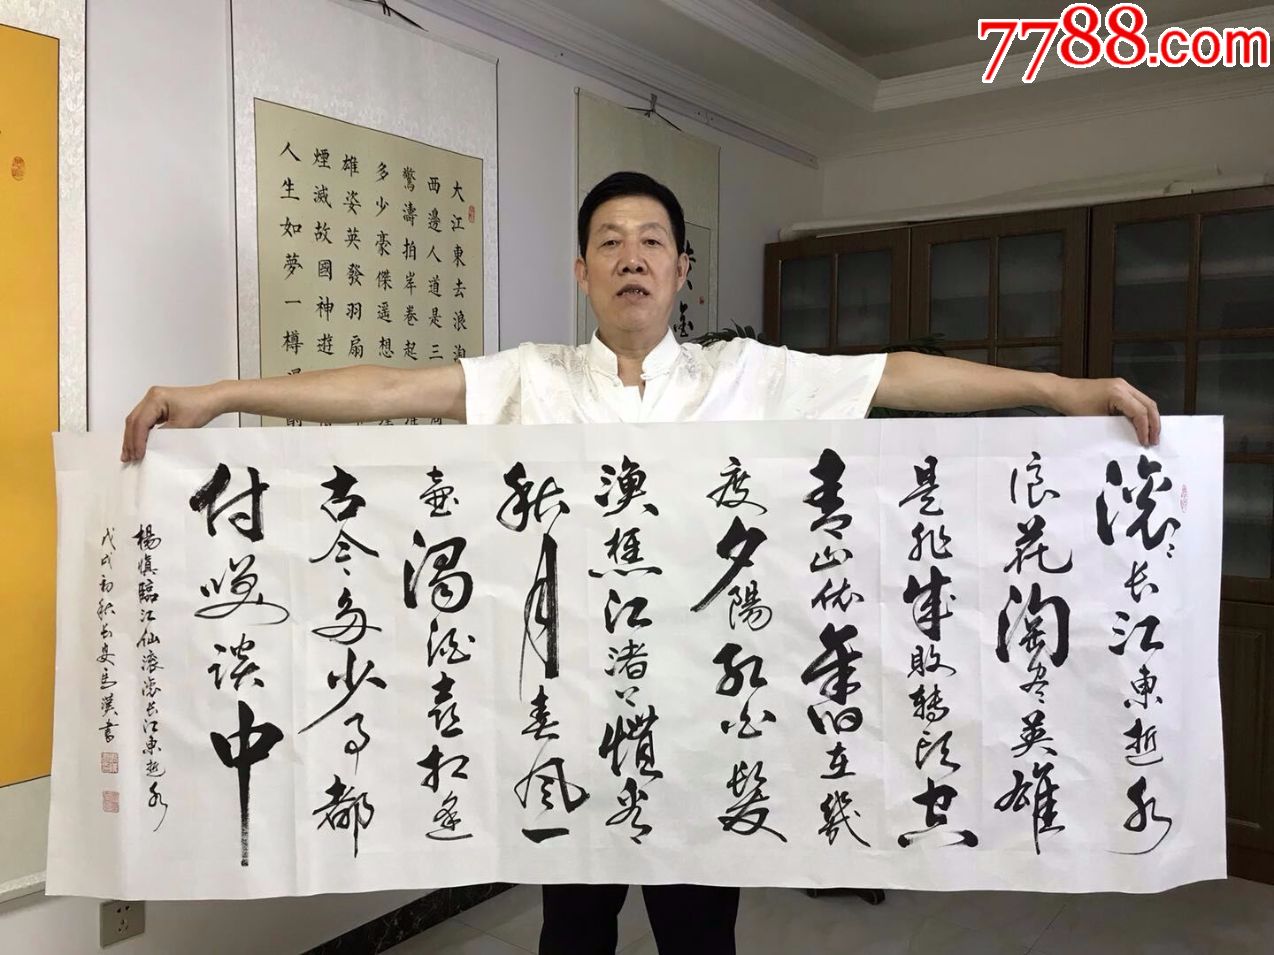 7788.com
滚滚长江東逝水
浪花淘尽英雄
是非成敗轉頭空
青山依舊在幾
度夕陽紅白髮
漁樵江渚上慣看
秋月春風一
壺濁酒喜相逢
古今多少事都
付笑談中
楊慎臨江仙滚滚长江東逝水
戊戌初秋长安馬漢書
大江東去浪淘
西邊人道是三
驚濤拍岸卷起
多少豪傑遥想
雄姿英發羽扇
煙滅故國神遊
人生如夢一樽